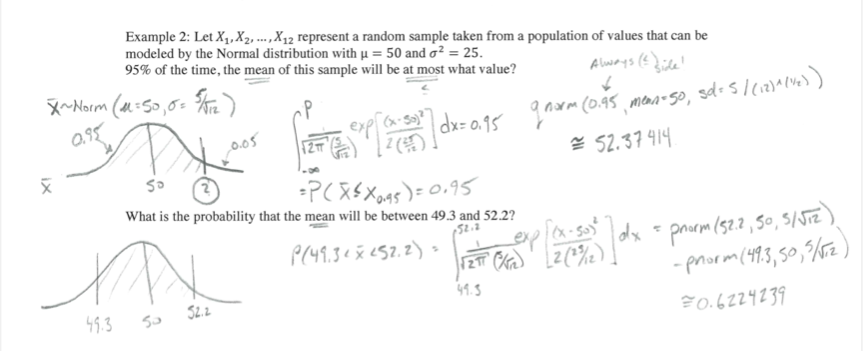 Example 2: Let X₁, X₂, ..., X₁₂ represent a random sample taken from a population of values that can be
modeled by the Normal distribution with μ = 50 and σ² = 25.
95% of the time, the mean of this sample will be at most what value?
≤
Always (≤) side!
X̄~Norm (μ=50, σ= 5/√12)
0.95
0.05
X̄
50
?
∫_{-∞}^{P} 1/(√2π (5/√12)) exp[(x-50)²/(2(25/12))] dx = 0.95
=P(X̄≤X₀.₉₅)=0.95
qnorm(0.95, mean=50, sd=5/(12)^(1/2))
≅ 52.37414
What is the probability that the mean will be between 49.3 and 52.2?
49.3
50
52.2
P(49.3<x̄<52.2) = ∫_{49.3}^{52.2} 1/(√2π (5/√12)) exp[(x-50)²/(2(25/12))] dx = pnorm(52.2, 50, 5/√12)
-pnorm(49.3, 50, 5/√12)
≅0.6224239